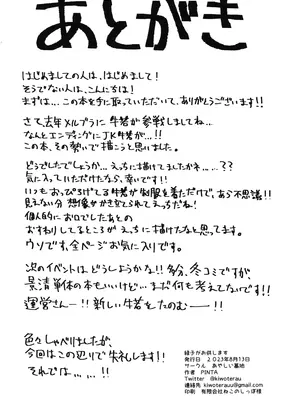 あとがき
はじめましての人は、はじめまして！
そうでない人は、こんにちは！
まずは…この本を手に取っていただいて、ありがとうございます!!
さて去年メルブラに牛若が参戦しましてね…
なんとエンディングにJK牛若が…!!
この本、その勢いで描こうと思いました。
どうでしたでしょうか…えっちに描けてましたかネ…??
気に入っていただけたなら、幸いです!!
いつもおっぴろげてる牛若が制服を着ただけで、あら不思議!!
見えない分 想像がかき立てられてえっちだね！
個人的にお口でしたあとの
おすわりしてるところがえっちに描けたなと思ってます。
ウソです、全ページお気に入りです。
次のイベントは、どうしようかな!!多分、冬コミですが、
景清単体の本もいいけど…まだ何も考えてないです!!
運営さんー!!新しい牛若をたのむー!!
色々しゃべりましたが、
今回はこの辺りで失礼します!!
それでは…!!
緋子がお供します
発行日 2023年8月13日
サークル あやしい墓地
作者 PINTA
Twitter @kiwoterau
連絡先 kiwoterau@gmail.com
印刷 有限会社ねこのしっぽ様